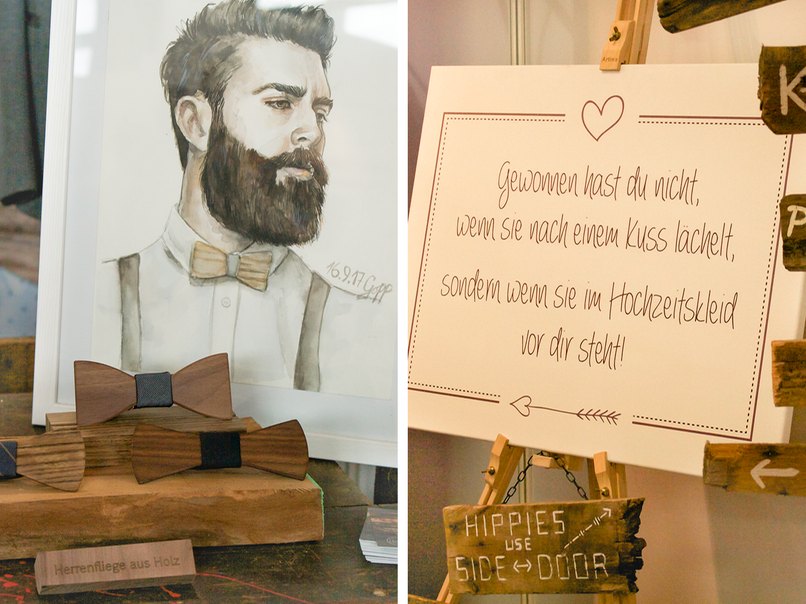 16.9.17
Herrenfliege aus Holz
Gewonnen hast du nicht,
wenn sie nach einem Kuss lächelt,
sondern wenn sie im Hochzeitskleid
vor dir steht!
HIPPIES
USE
SIDE ↔ DOOR
K
P